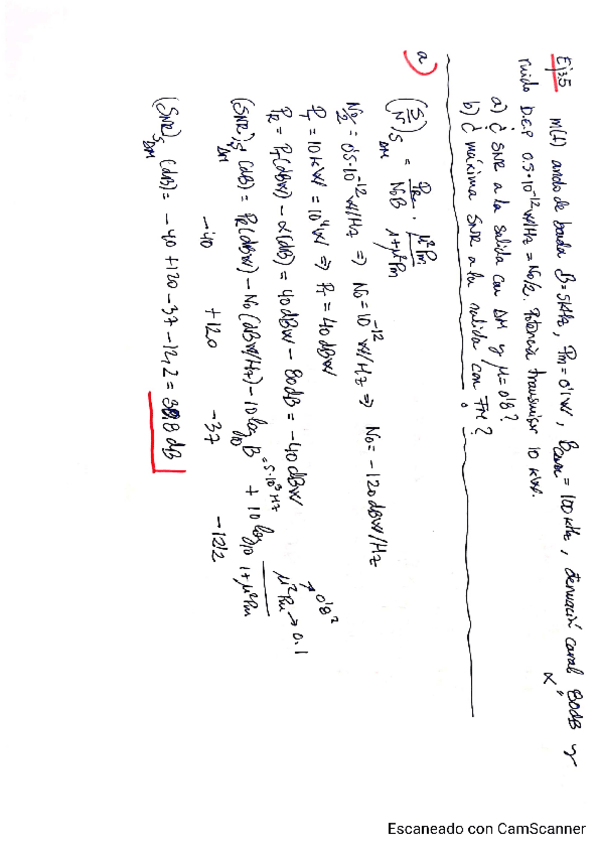 Ej35 m(t) ancho de banda B=5kHz, Pm=0'1W, Bcanal=100kHz, atenuación canal 80dB y
α
ruido D.E.P 0.5·10^-12 W/Hz = No/2. Potencia transmisor 10 kW.
a) ¿ SNR a la salida con AM y μ=0'8?
b) ¿ máxima SNR a la salida con FM?
a) (S/N)S AM = PR/NoB · μ²Pm/1+μ²Pm
No/2 = 0'5·10^-12 W/Hz ⇒ No=10^-12 W/Hz ⇒ No=-120dBW/Hz
PT=10kW=10^4W ⇒ PT=40dBW
PR=PT(dBW)-α(dB)=40dBW-80dB=-40dBW
(SNR)S AM (dB)=PR(dBW)-No(dBW/Hz)-10log10 B=5·10^3Hz +10log10 μ²Pm/1+μ²Pm → 0.1
0'8²
-40 +120 -37 -12,2
(SNR)S AM (dB)= -40+120-37-12,2=30,8 dB
Escaneado con CamScanner